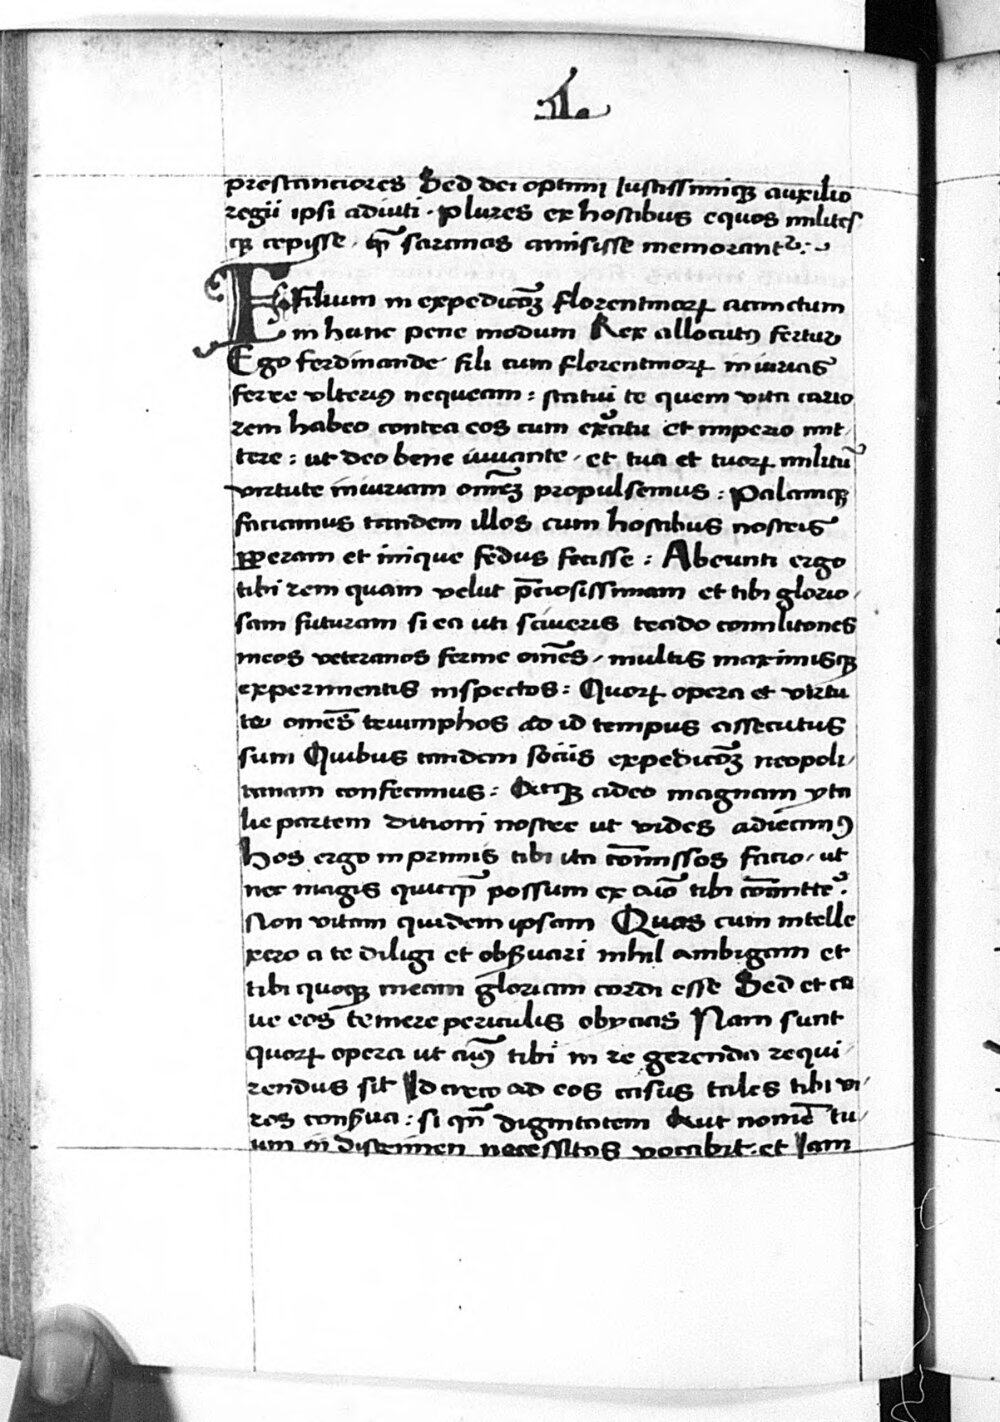 .1.
prestanciores Sed dei optimi Iustissimiqꝫ auxilio
regii ipsi adiuti · plures ex hostibus equos milites
qꝫ cepisse · qꝫ̄ sarcinas amisisse memorantᷣ:~
Filium in expedicōꝫ florentinoꝝ accinctum
in hunc pene modum Rex allocutꝰ fertur
Ego ferdinande fili cum florentinoꝝ iniurias
ferre vlteriꝰ nequeam : statui te quem vita cario
rem habeo contra eos cum exercitu et imperio mit/
tere : ut deo bene iuuante · et tua et tuoꝝ militū
virtute iniuriam om̄eꝫ propulsemus : Palamqꝫ
faciamus tandem illos cum hostibus nostris
ꝑperam et inique fedus fecisse : Abeunti ergo
tibi rem quam velut p̄ciosissimam et tibi glorio/
sam futuram si ea uti sciueris trado comilitones
meos veteranos ferme om̄es / multis maximisqꝫ
experimentis inspectos : Quoꝝ opera et virtu
te om̄es triumphos ad id tempus assecutus
sum Quibus tandem sociis expedicōꝫ neopoli/
tanam confecimus : Atqꝫ adeo magnam yta
lie partem ditioni nostre ut vides adiecimꝰ
hos ergo in primis tibi ita com̄issos facio · ut
nec magis quicqꝫ̄ possum ex aīo tibi com̄itte᷑ ·
Non vitam quidem ipsam Quos cum intelle
xero a te diligi et obẜuari nihil ambigam et
tibi quoqꝫ meam gloriam cordi esse Sed et ca
ue eos temere periculis obycias Nam sunt
quoꝝ opera ut cuiꝰ tibi in re gerenda requi/
rendus sit Id circo ad eos casus tales tibi vi/
ros conẜua : si qn̄ dignitatem Aut nomē tu/
um in discrimen necessitas vocabit · et Iam